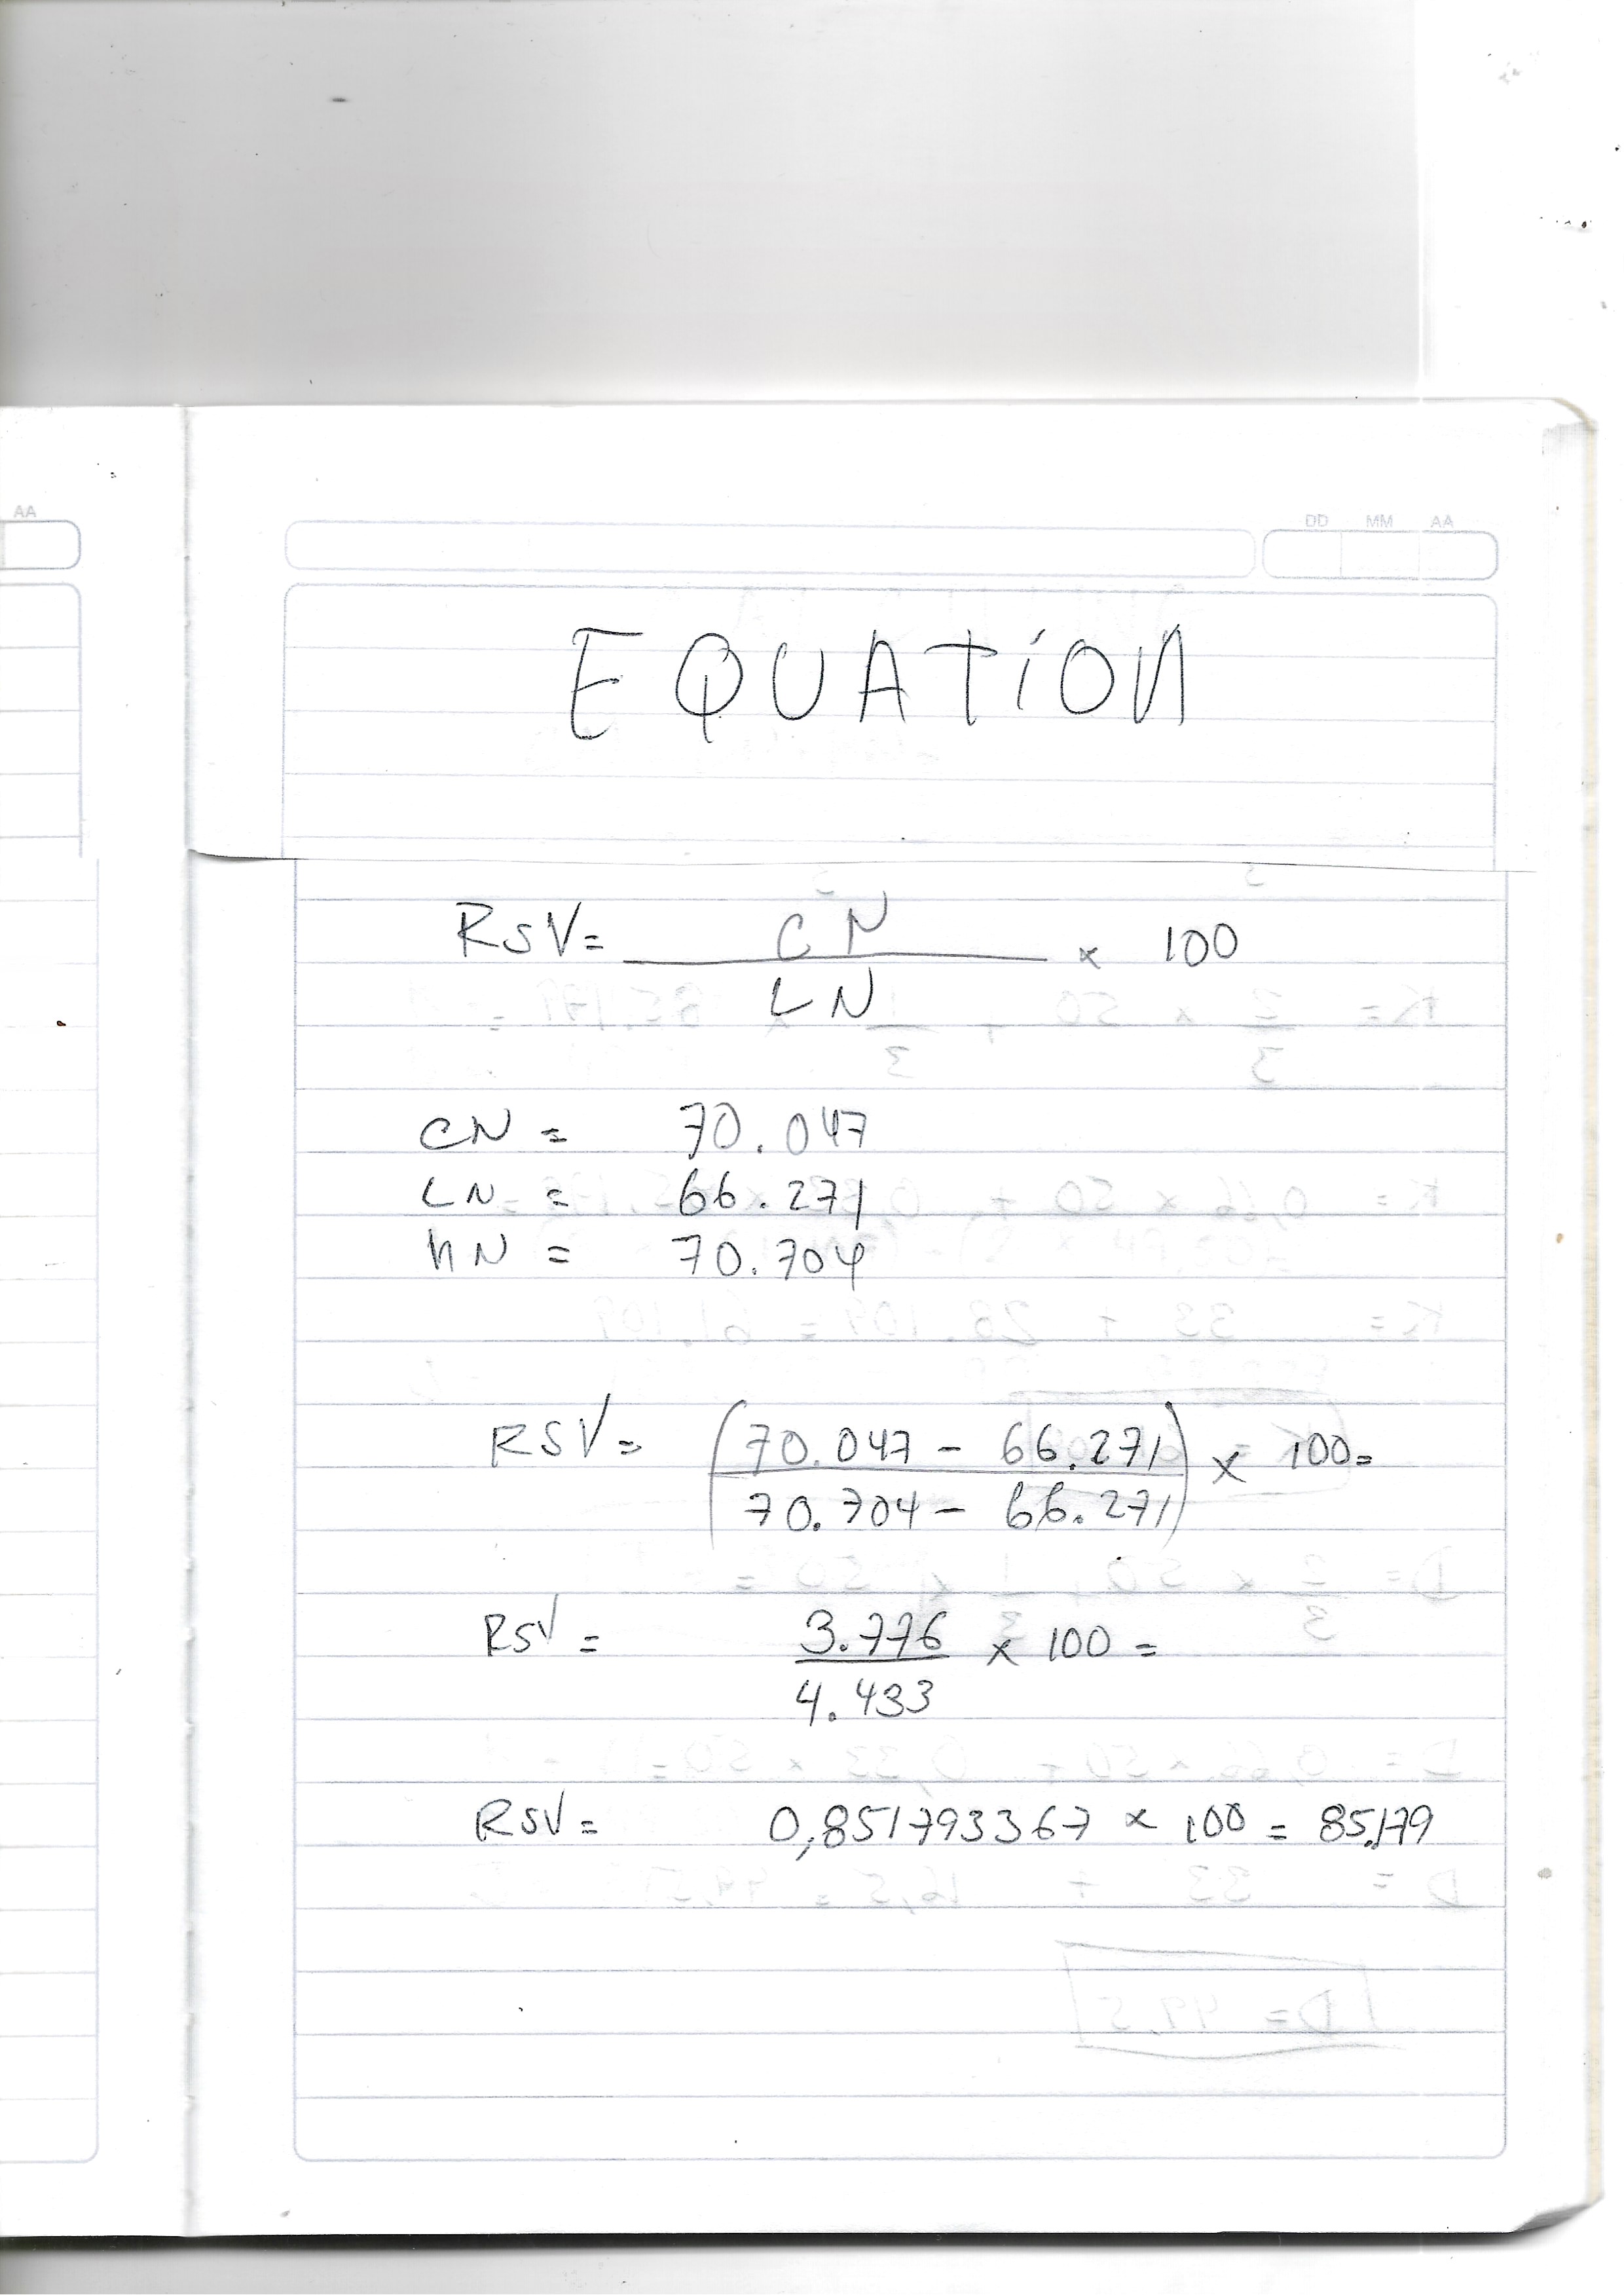 AA
DD MM AA
EQUATION
RSV= CN / LN × 100
CN = 70.047
LN = 66.271
HN = 70.704
RSV= (70.047 - 66.271 / 70.704 - 66.271) × 100=
RSV = 3.776 / 4.433 × 100 =
RSV= 0,851793367 × 100 = 85.179